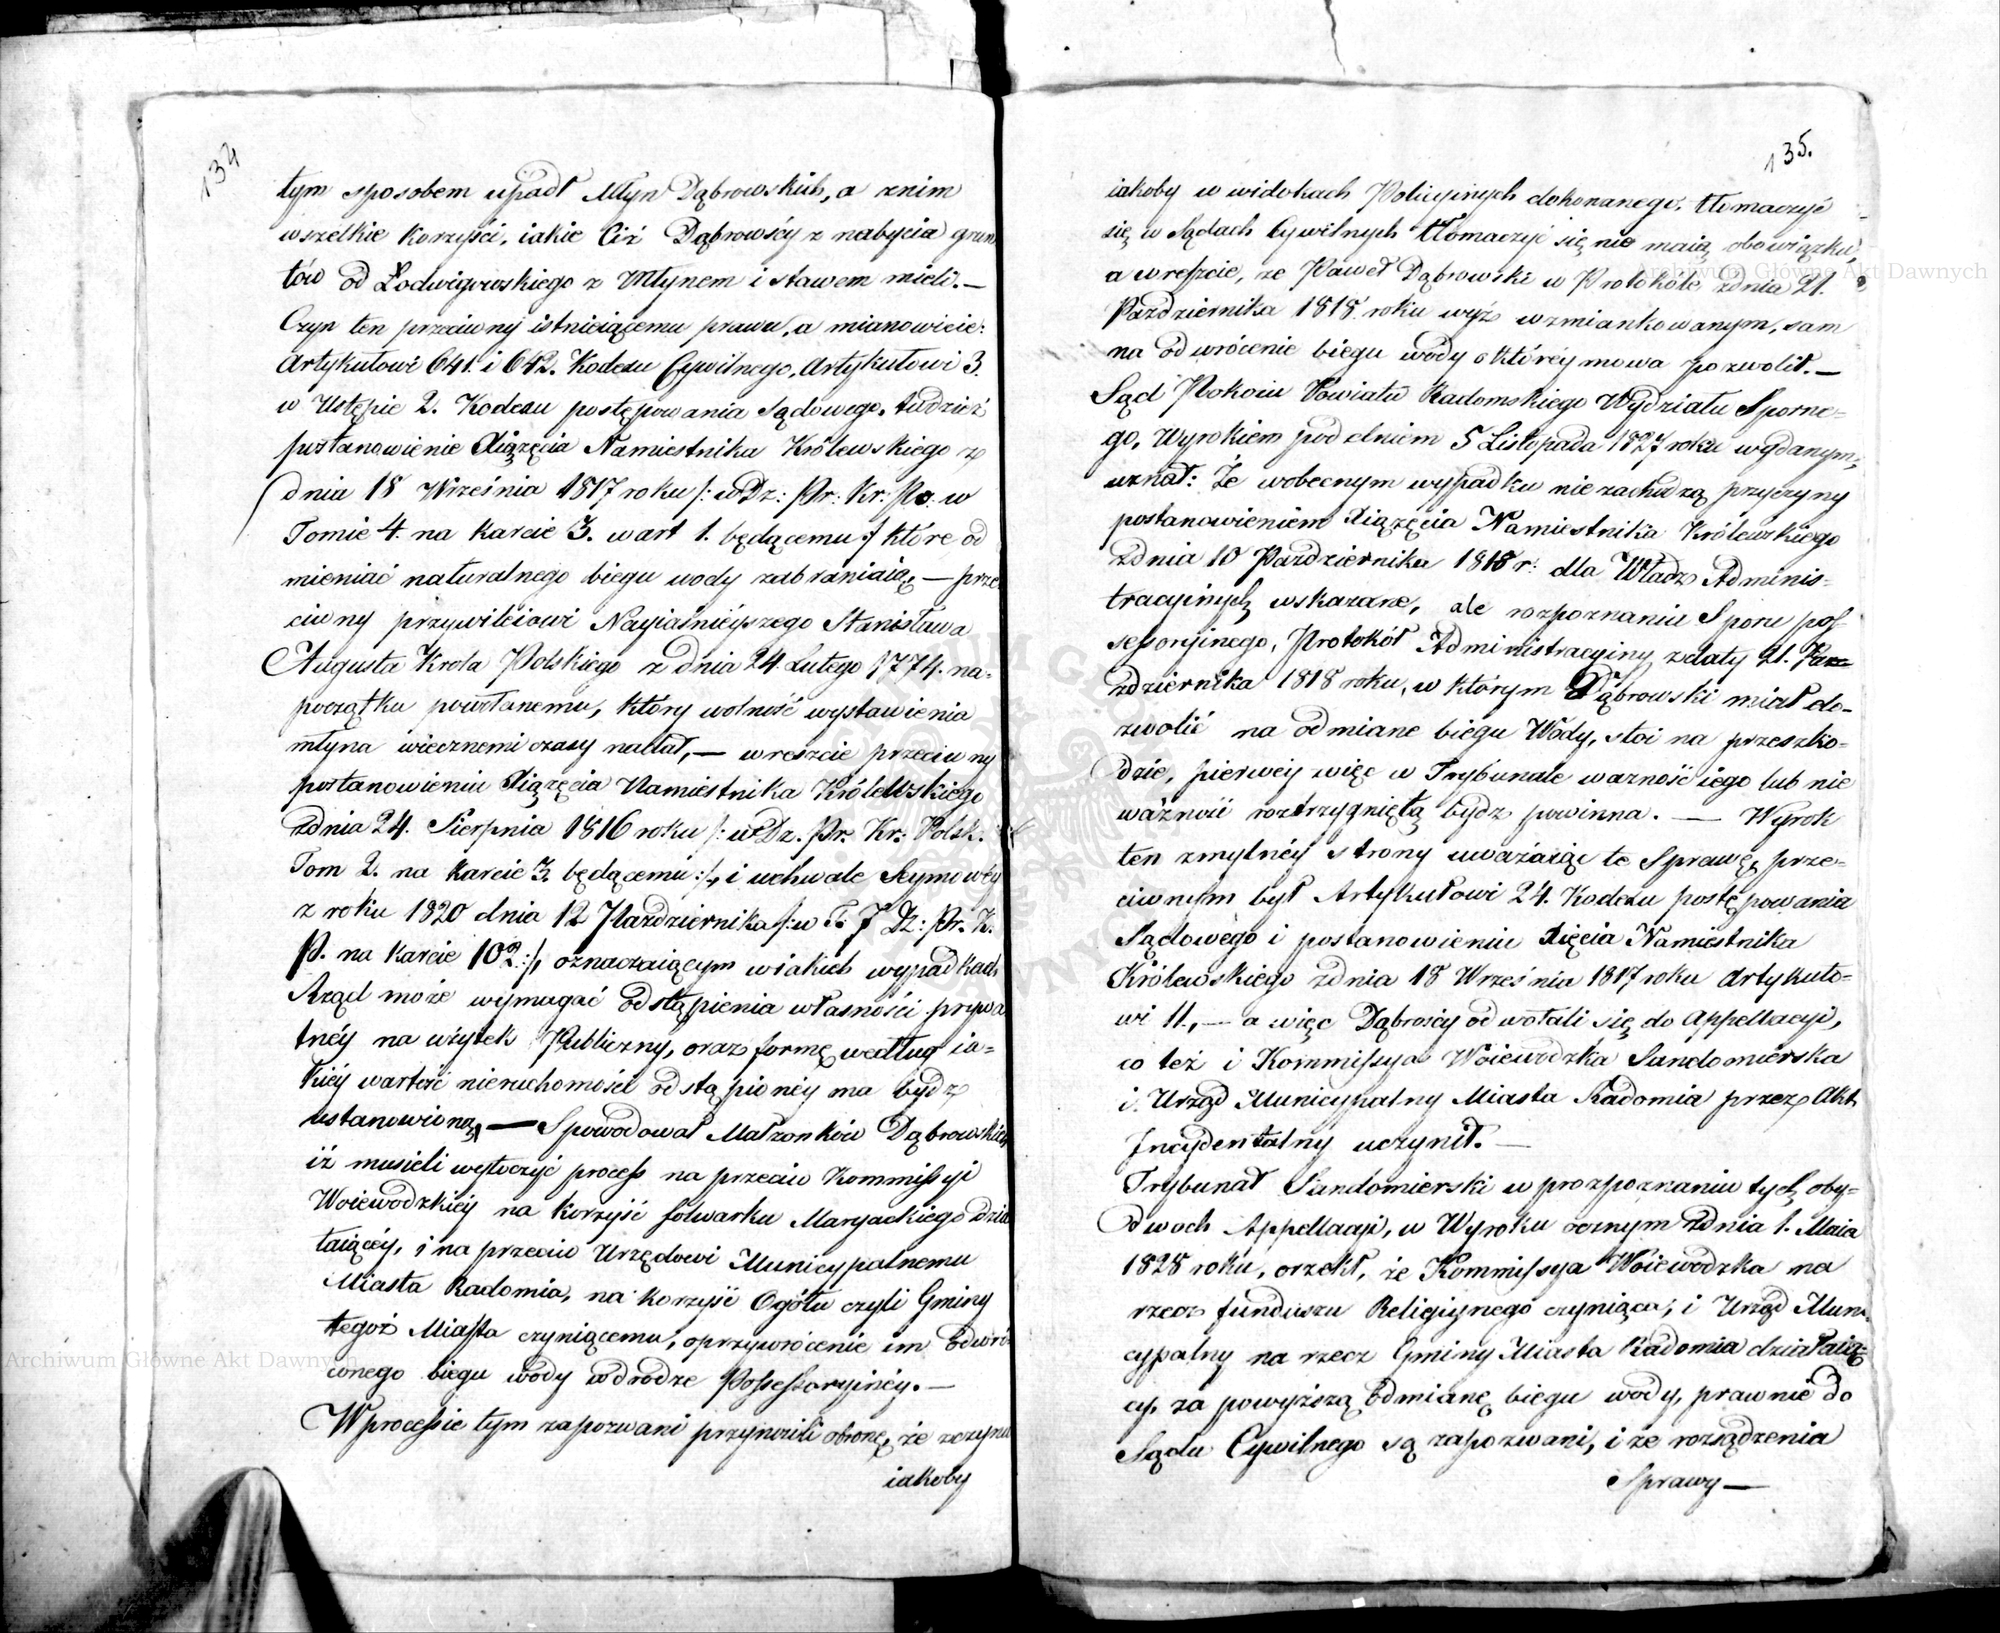 134
tym sposobem upadł Młyn Dąbrowskich, a znim
wszelkie korzyści, iakie Ciż Dąbrowscy z nabycia grun
tów od Łodwigowskiego z Młynem i stawem mieli. —
Czyn ten przeciwny istnieiącemu prawu, a mianowicie:
Artykułowi 641. i 642. Kodexu Cywilnego, Artykułowi 3.
w Ustępie 2. Kodexu postępowania Sądowego, tudzież
postanowienie Xiążęcia Namiestnika Królewskiego z
dnia 18 Września 1817 roku /: w Dz: Pr: Kr: Po. w
Tomie 4. na karcie 3. wart 1. będącemu :/ które od
mieniać naturalnego biegu wody zabraniaią, — prze
ciwny przywileiowi Nayiaśnieyszego Stanisława
Augusta Króla Polskiego z dnia 24. Lutego 1774. na-
początku powołanemu, który wolność wystawienia
młyna wiecznemi czasy nadał, — wreszcie przeciwny
postanowieniu Xiążęcia Namiestnika Królewskiego
zdnia 24. Sierpnia 1816 roku /: w Dz. Pr: Kr: Polsk.
Tom 2. na karcie 3. będącemu :/, i uchwale Seymowéy
z roku 1820 dnia 12 Października /: w T: 7 Dz: Pr: K.
P. na karcie 102 :/, oznaczaiącym wiakich wypadkach
Rząd może wymagać odstąpienia własności prywa
tnéy na użytek Publiczny, oraz formę według ia-
kiéy wartość nieruchomości odstąpionéy ma bydz
ustanowioną, — Spowodował Małzonków Dąbrowskich
iż musieli wytoczyć process na przeciw Kommissyi
Woiewodzkiéy na korzyść folwarku Maryackiego dzia
łaiącéy, i na przeciw Urzędowi Municypalnemu
Miasta Radomia, na korzyść Ogółu czyli Gminy
tegoż Miasta czyniącemu, oprzywrócenie im odwró
conego biegu wody w drodze Possessoryinéy. —
W processie tym zapozwani przynieśli obronę, że zczynu
iakoby
135.
iakoby w widokach Policyinych dokonanego, tłomaczyć
się w Sądach Cywilnych tłomaczyć się nie maią obowiązku,
a wreszcie, ze Paweł Dąbrowski w Protokóle zdnia 21.
Października 1818 roku wyż wzmiankowanym, sam
na odwrócenie biegu wody o któréy mowa pozwolił. —
Sąd Pokoiu Powiatu Radomskiego Wydziału Sporne-
go, Wyrokiem pod dniem 5 Listopada 1827 roku wydanym,
uznał: Że wobecnym wypadku nie zachodzą przyczyny
postanowieniem Xiążęcia Namiestnika Królewskiego
zdnia 10 Października 1818 r: dla Władz Adminis-
tracyinych wskazane, ale rozpoznaniu Sporu pos-
sessoryinego, Protokół Administracyiny z daty 21. Paz-
dziernika 1818 roku, w którym Dąbrowski miał do-
zwolić na odmianę biegu Wody, stoi na przeszko-
dzie, pierwéy więc w Trybunale ważność iego lub nie
ważność roztrzygniętą bydz powinna. — Wyrok
ten zmylnéy strony uważaiąc te Sprawę, prze-
ciwnym był Artykułowi 24. Kodexu postępowania
Sądowego i postanowieniu Xięcia Namiestnika
Królewskiego zdnia 18 Września 1817 roku Artykuło-
wi 11., — a więc Dąbroscy odwołali się do Appellacyi,
co też i Kommissya Woiewodzka Sandomierska
i Urząd Municypalny Miasta Radomia przez Akt
Incydentalny uczynił. —
Trybunał Sandomierski w prozpoznaniu tych oby-
dwoch Appellacyi, w Wyroku ocznym zdnia 1. Maia
1828 roku, orzekł, że Kommissya Woiewodzka na
rzecz funduszu Religiynego czyniąca, i Urząd Muni-
cypalny na rzecz Gminy Miasta Radomia działaią-
cy, za powyższą odmianę biegu wody, prawnie do
Sądu Cywilnego są zapozwani, i że rozsądzenia
Sprawy —
Archiwum Główne Akt Dawnych
Archiwum Główne Akt Dawnych